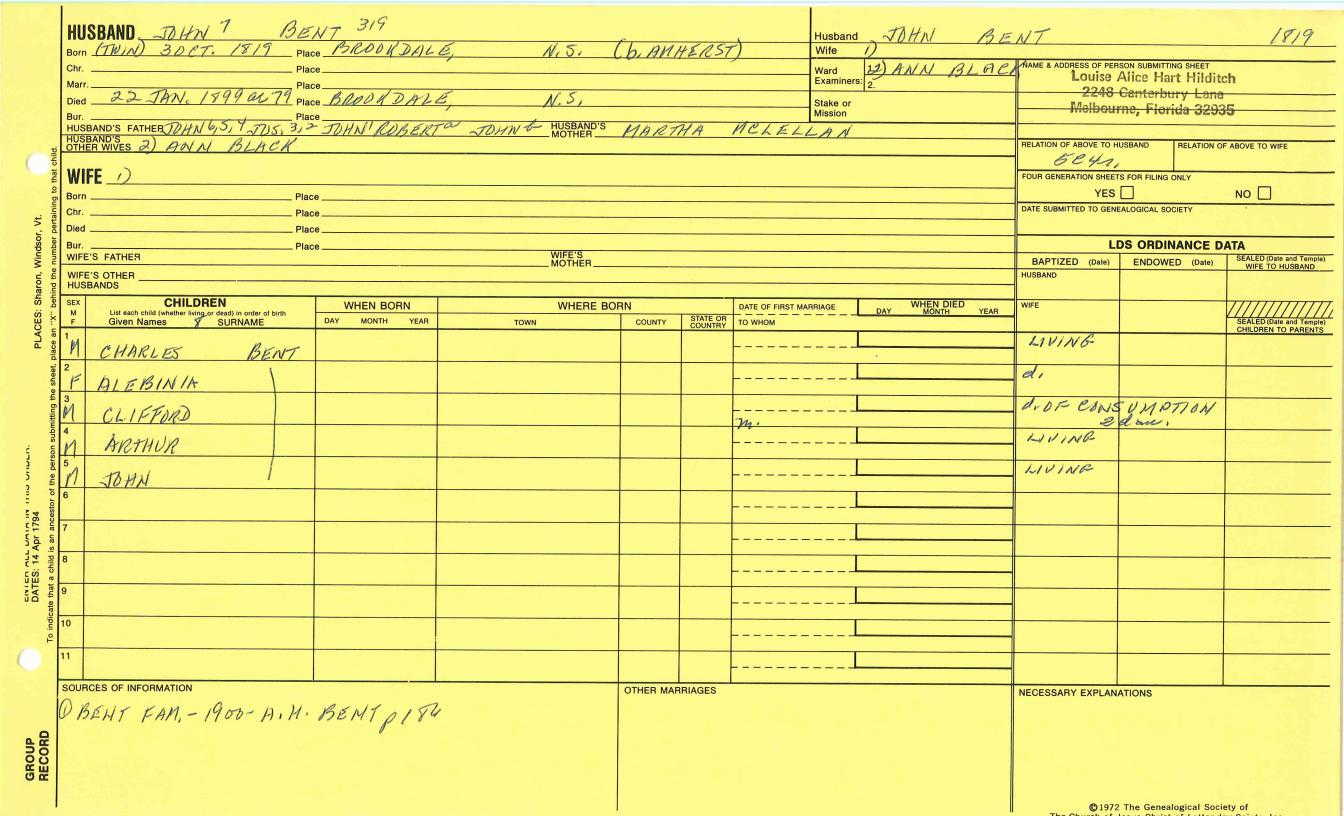 HUSBAND JOHN 7 BENT 319
Born (TWIN) 3 OCT. 1819 Place BROOKDALE, N.S. (b. AMHERST)
Chr. Place
Marr. Place
Died 22 JAN. 1899 or 79 Place BROOKDALE, N.S.
Bur. Place
HUSBAND'S FATHER JOHN 6,5,4 JOS. 3,2 JOHN 1 ROBERT a JOHN b HUSBAND'S MOTHER MARTHA MCLELLAN
HUSBAND'S OTHER WIVES 2) ANN BLACK
Husband JOHN BENT 1819
Wife 1)
Ward Examiners: 2) ANN BLACK
2.
Stake or Mission
NAME & ADDRESS OF PERSON SUBMITTING SHEET
Louise Alice Hart Hilditch
2248 Canterbury Lane
Melbourne, Florida 32935
RELATION OF ABOVE TO HUSBAND RELATION OF ABOVE TO WIFE
5C4r.
FOUR GENERATION SHEETS FOR FILING ONLY
YES NO
DATE SUBMITTED TO GENEALOGICAL SOCIETY
WIFE 1)
Born Place
Chr. Place
Died Place
Bur. Place
WIFE'S FATHER WIFE'S MOTHER
WIFE'S OTHER HUSBANDS
LDS ORDINANCE DATA
BAPTIZED (Date) ENDOWED (Date) SEALED (Date and Temple) WIFE TO HUSBAND
HUSBAND
WIFE
SEALED (Date and Temple) CHILDREN TO PARENTS
SEX M F CHILDREN WHEN BORN WHERE BORN DATE OF FIRST MARRIAGE WHEN DIED
List each child (whether living or dead) in order of birth
Given Names 8 SURNAME DAY MONTH YEAR TOWN COUNTY STATE OR COUNTRY TO WHOM DAY MONTH YEAR
1 M CHARLES BENT LIVING
2 F ALEBINIA d.
3 M CLIFFORD m. d. OF CONSUMPTION
2 dau.
4 M ARTHUR LIVING
5 M JOHN LIVING
6
7
8
9
10
11
SOURCES OF INFORMATION
① BENT FAM. - 1900 - A.H. BENT
OTHER MARRIAGES
NECESSARY EXPLANATIONS
©1972 The Genealogical Society of
The Church of Jesus Christ of Latter-day Saints, Inc.
PLACES: Sharon, Windsor, Vt.
ENTER ALL DATA IN THIS ORDER:
DATES: 14 Apr 1794
To indicate that a child is an ancestor of the person submitting the sheet, place an "X" behind the number pertaining to that child.
GROUP
RECORD